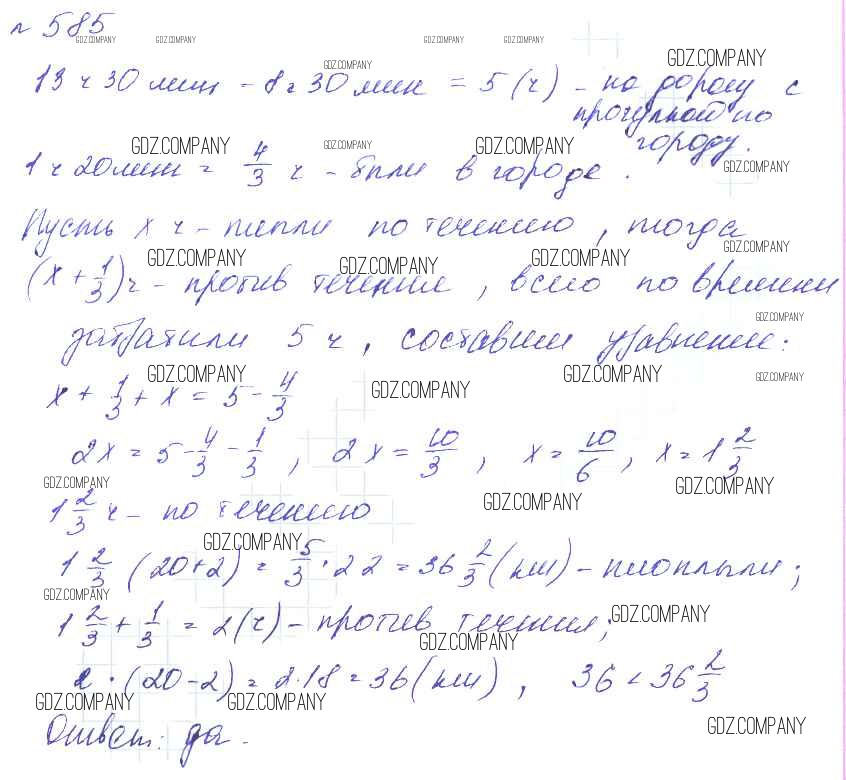 № 585
GDZ.COMPANY GDZ.COMPANY GDZ.COMPANY GDZ.COMPANY
GDZ.COMPANY GDZ.COMPANY
13 ч 30 мин - 8 ч 30 мин = 5 (ч) - на дорогу с
прогулкой по
городу.
GDZ.COMPANY GDZ.COMPANY GDZ.COMPANY GDZ.COMPANY
1 ч 20 мин = 4/3 ч - были в городе.
Пусть x ч - плыли по течению, тогда
GDZ.COMPANY GDZ.COMPANY GDZ.COMPANY GDZ.COMPANY
(x + 1/3) ч - против течения, всего по времени
GDZ.COMPANY
затратили 5 ч, составим уравнение:
GDZ.COMPANY GDZ.COMPANY GDZ.COMPANY GDZ.COMPANY
x + 1/3 + x = 5 - 4/3
2x = 5 - 4/3 - 1/3, 2x = 10/3, x = 10/6, x = 1 2/3
GDZ.COMPANY GDZ.COMPANY GDZ.COMPANY
1 2/3 ч - по течению
GDZ.COMPANY
1 2/3 (20+2) = 5/3 · 22 = 36 2/3 (км) -
GDZ.COMPANY GDZ.COMPANY
1 2/3 + 1/3 = 2 (ч) - против течения;
GDZ.COMPANY
2 · (20-2) = 2·18 = 36 (км), 36 < 36 2/3
GDZ.COMPANY GDZ.COMPANY GDZ.COMPANY
Ответ: да.